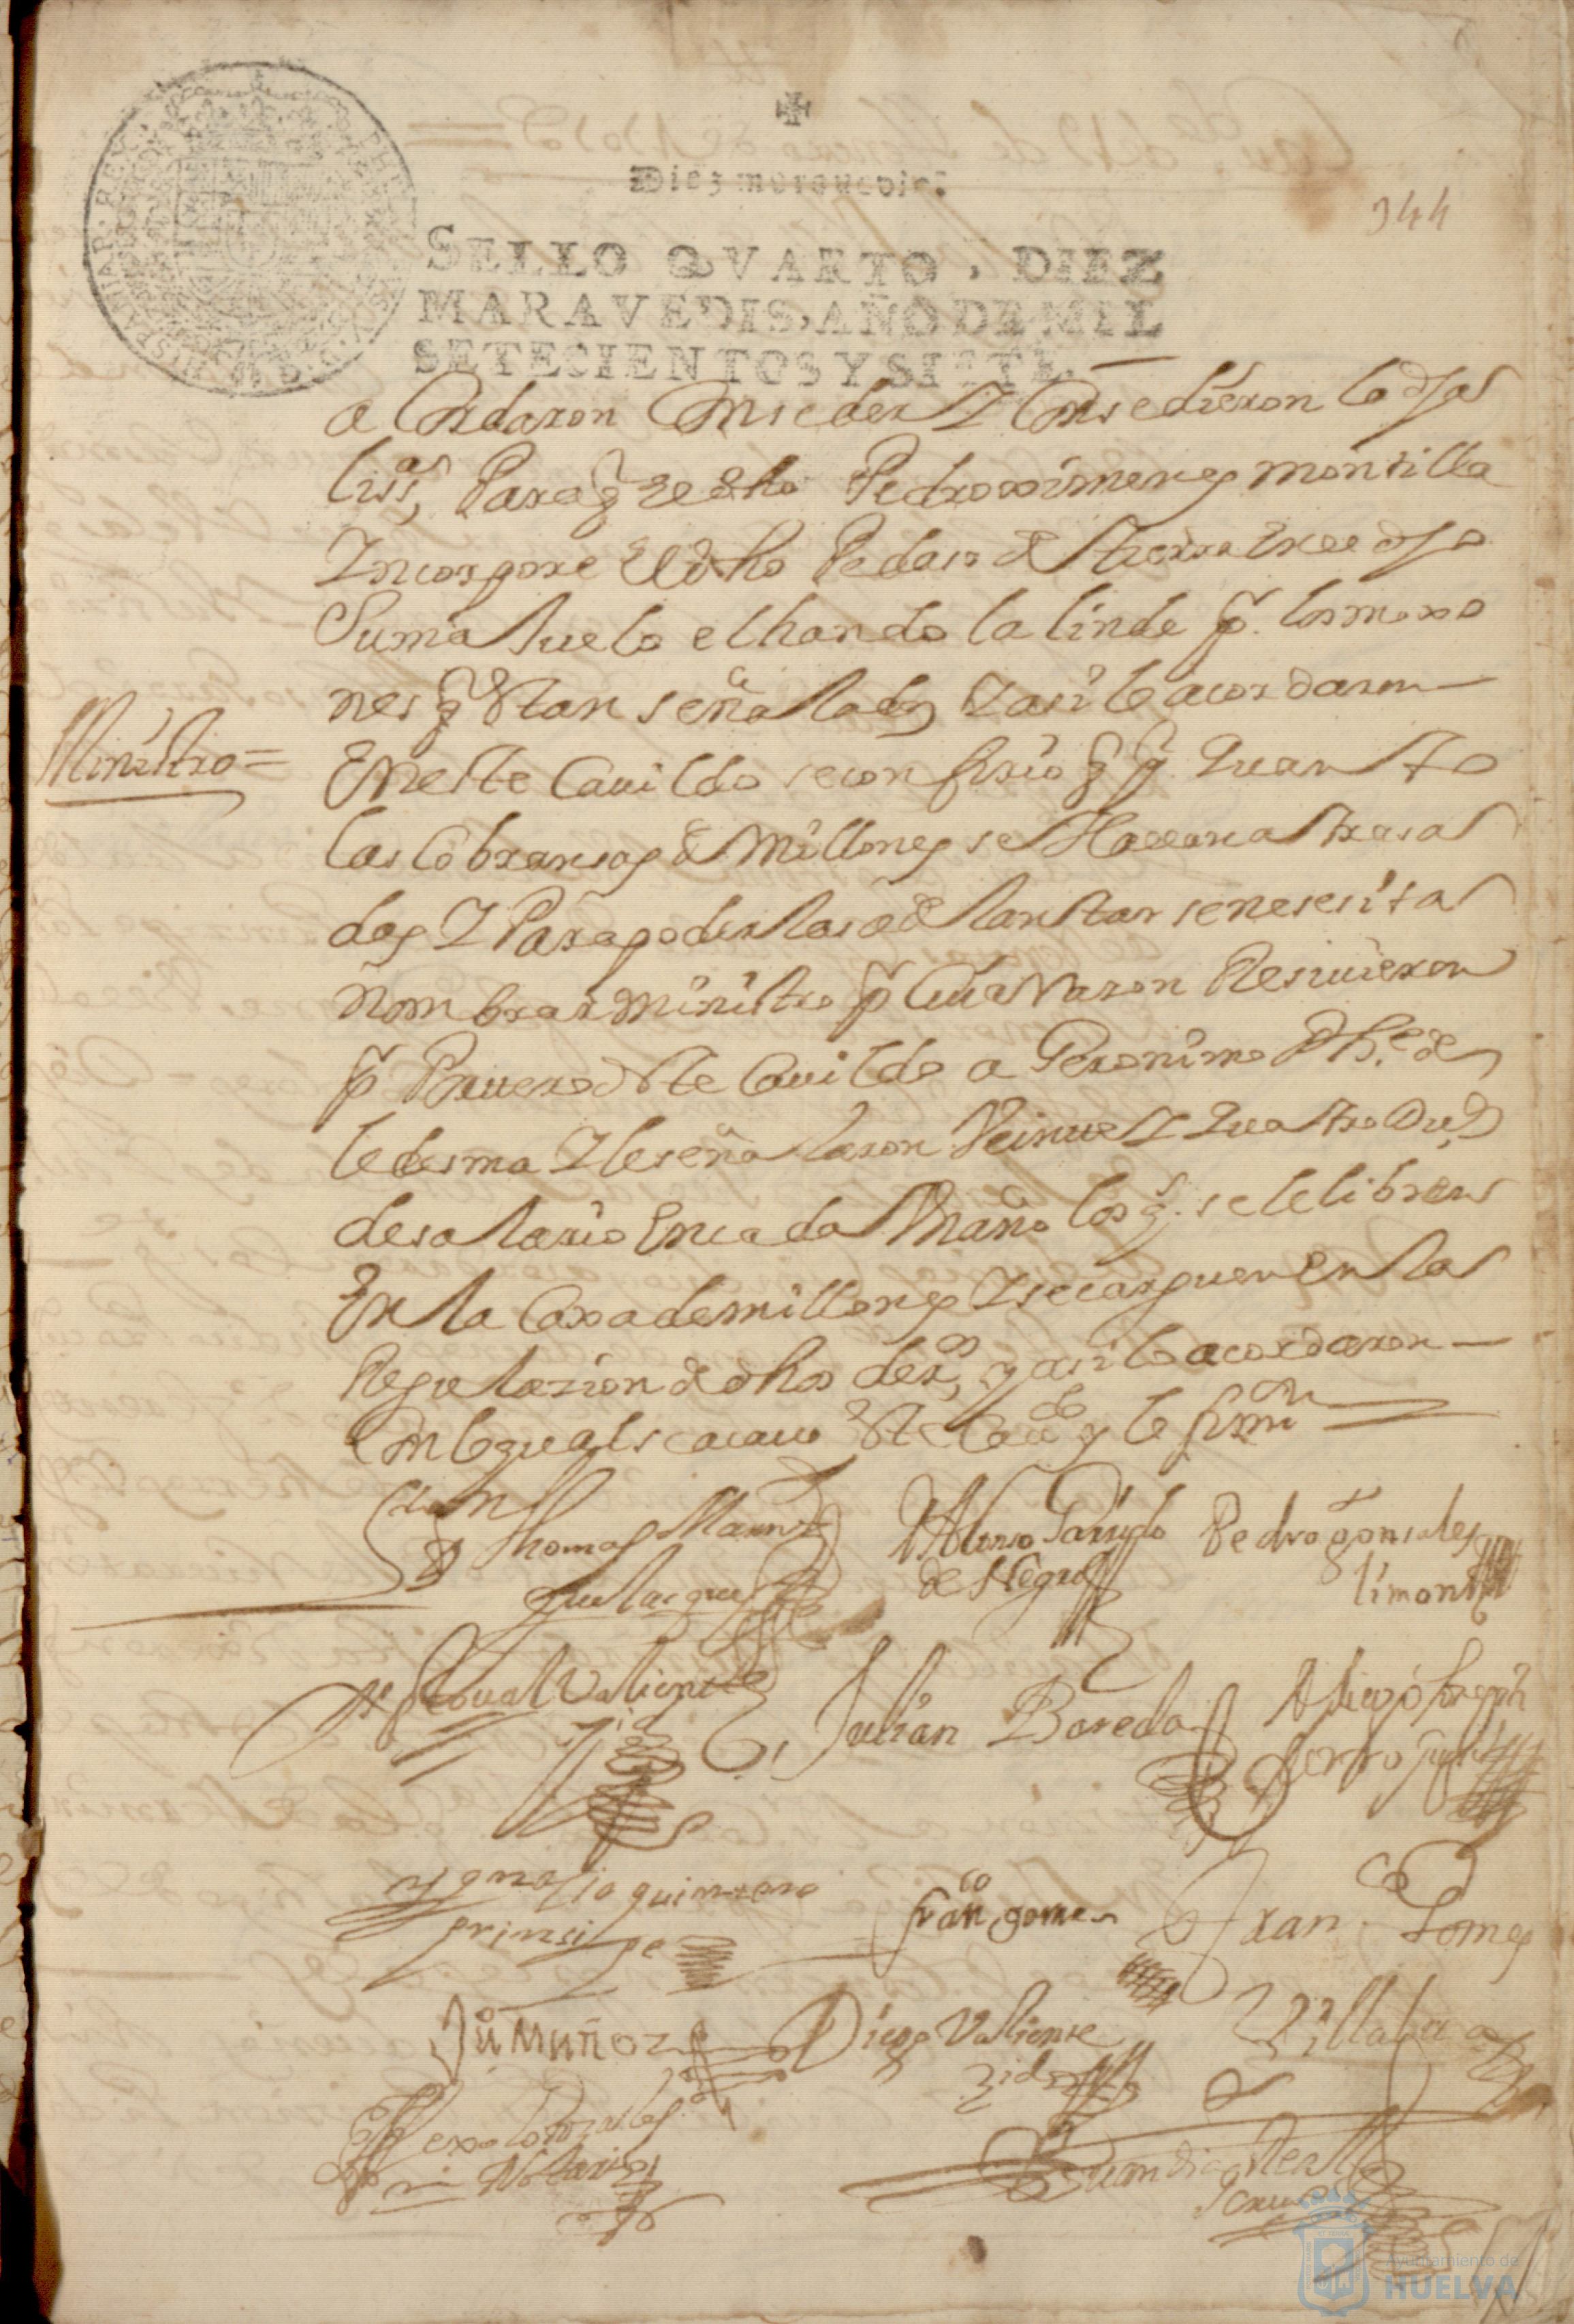 Diez marauedis.
944
SELLO QVARTO, DIEZ
MARAVEDIS, AÑO DE MIL
SETECIENTOS Y SIETE
acordaron Conseder Y Consedieron la dha
lisa, Para q el dho Pedro ximenez montilla
Yncorpore el dho Pedaso de tierra en el dho
Su majuelo echando la linde p. los moxo
nes q estan señalados Y asi lo acordaron
Ministro =
En este Cauildo se confirio q p. quanto
las Cobransas de Millones se Hallan atrasa
das Y Para poderlas adelantar se nesesita
nombrar ministro p Cuia razon Resiuieron
p Portero deste Cauildo a Geronimo Phe de
ledesma Y le señalaron Veinte Y quatro Dus
de salario En cada Un año los q. se le libren
En la Caxa de millones Y se carguen en las
Regulazion de dho der, y asi lo acordaron
Con lo qual se acauo este Cauo y lo firmn
Thomas Mann
Alonso Garrido
de Negro
Pedro gonsales
limon
Valiente
Julian Boreda
Diego Joseph
ygnasio quintero
prinsipe
fran, gomes
Fran Gomes
Villalua
Ju Muñoz
Diego Valiente
Juan diaz Real
Ayuntamiento de
HUELVA